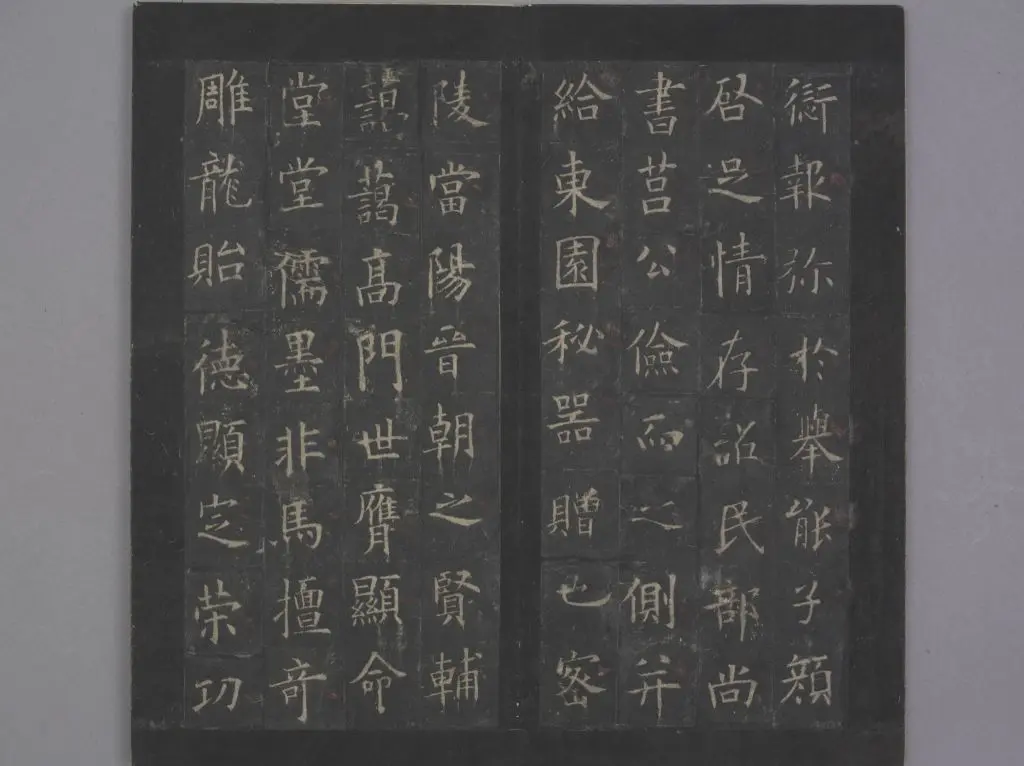 報弥於舉能子顔
啓足情存詔民部尚
書莒公儉而之側并
給東園秘器贈也密
陵當陽晉朝之賢輔
藹藹高門世膺顯命
堂堂儒墨非馬擅奇
雕龍貽德顯定榮功